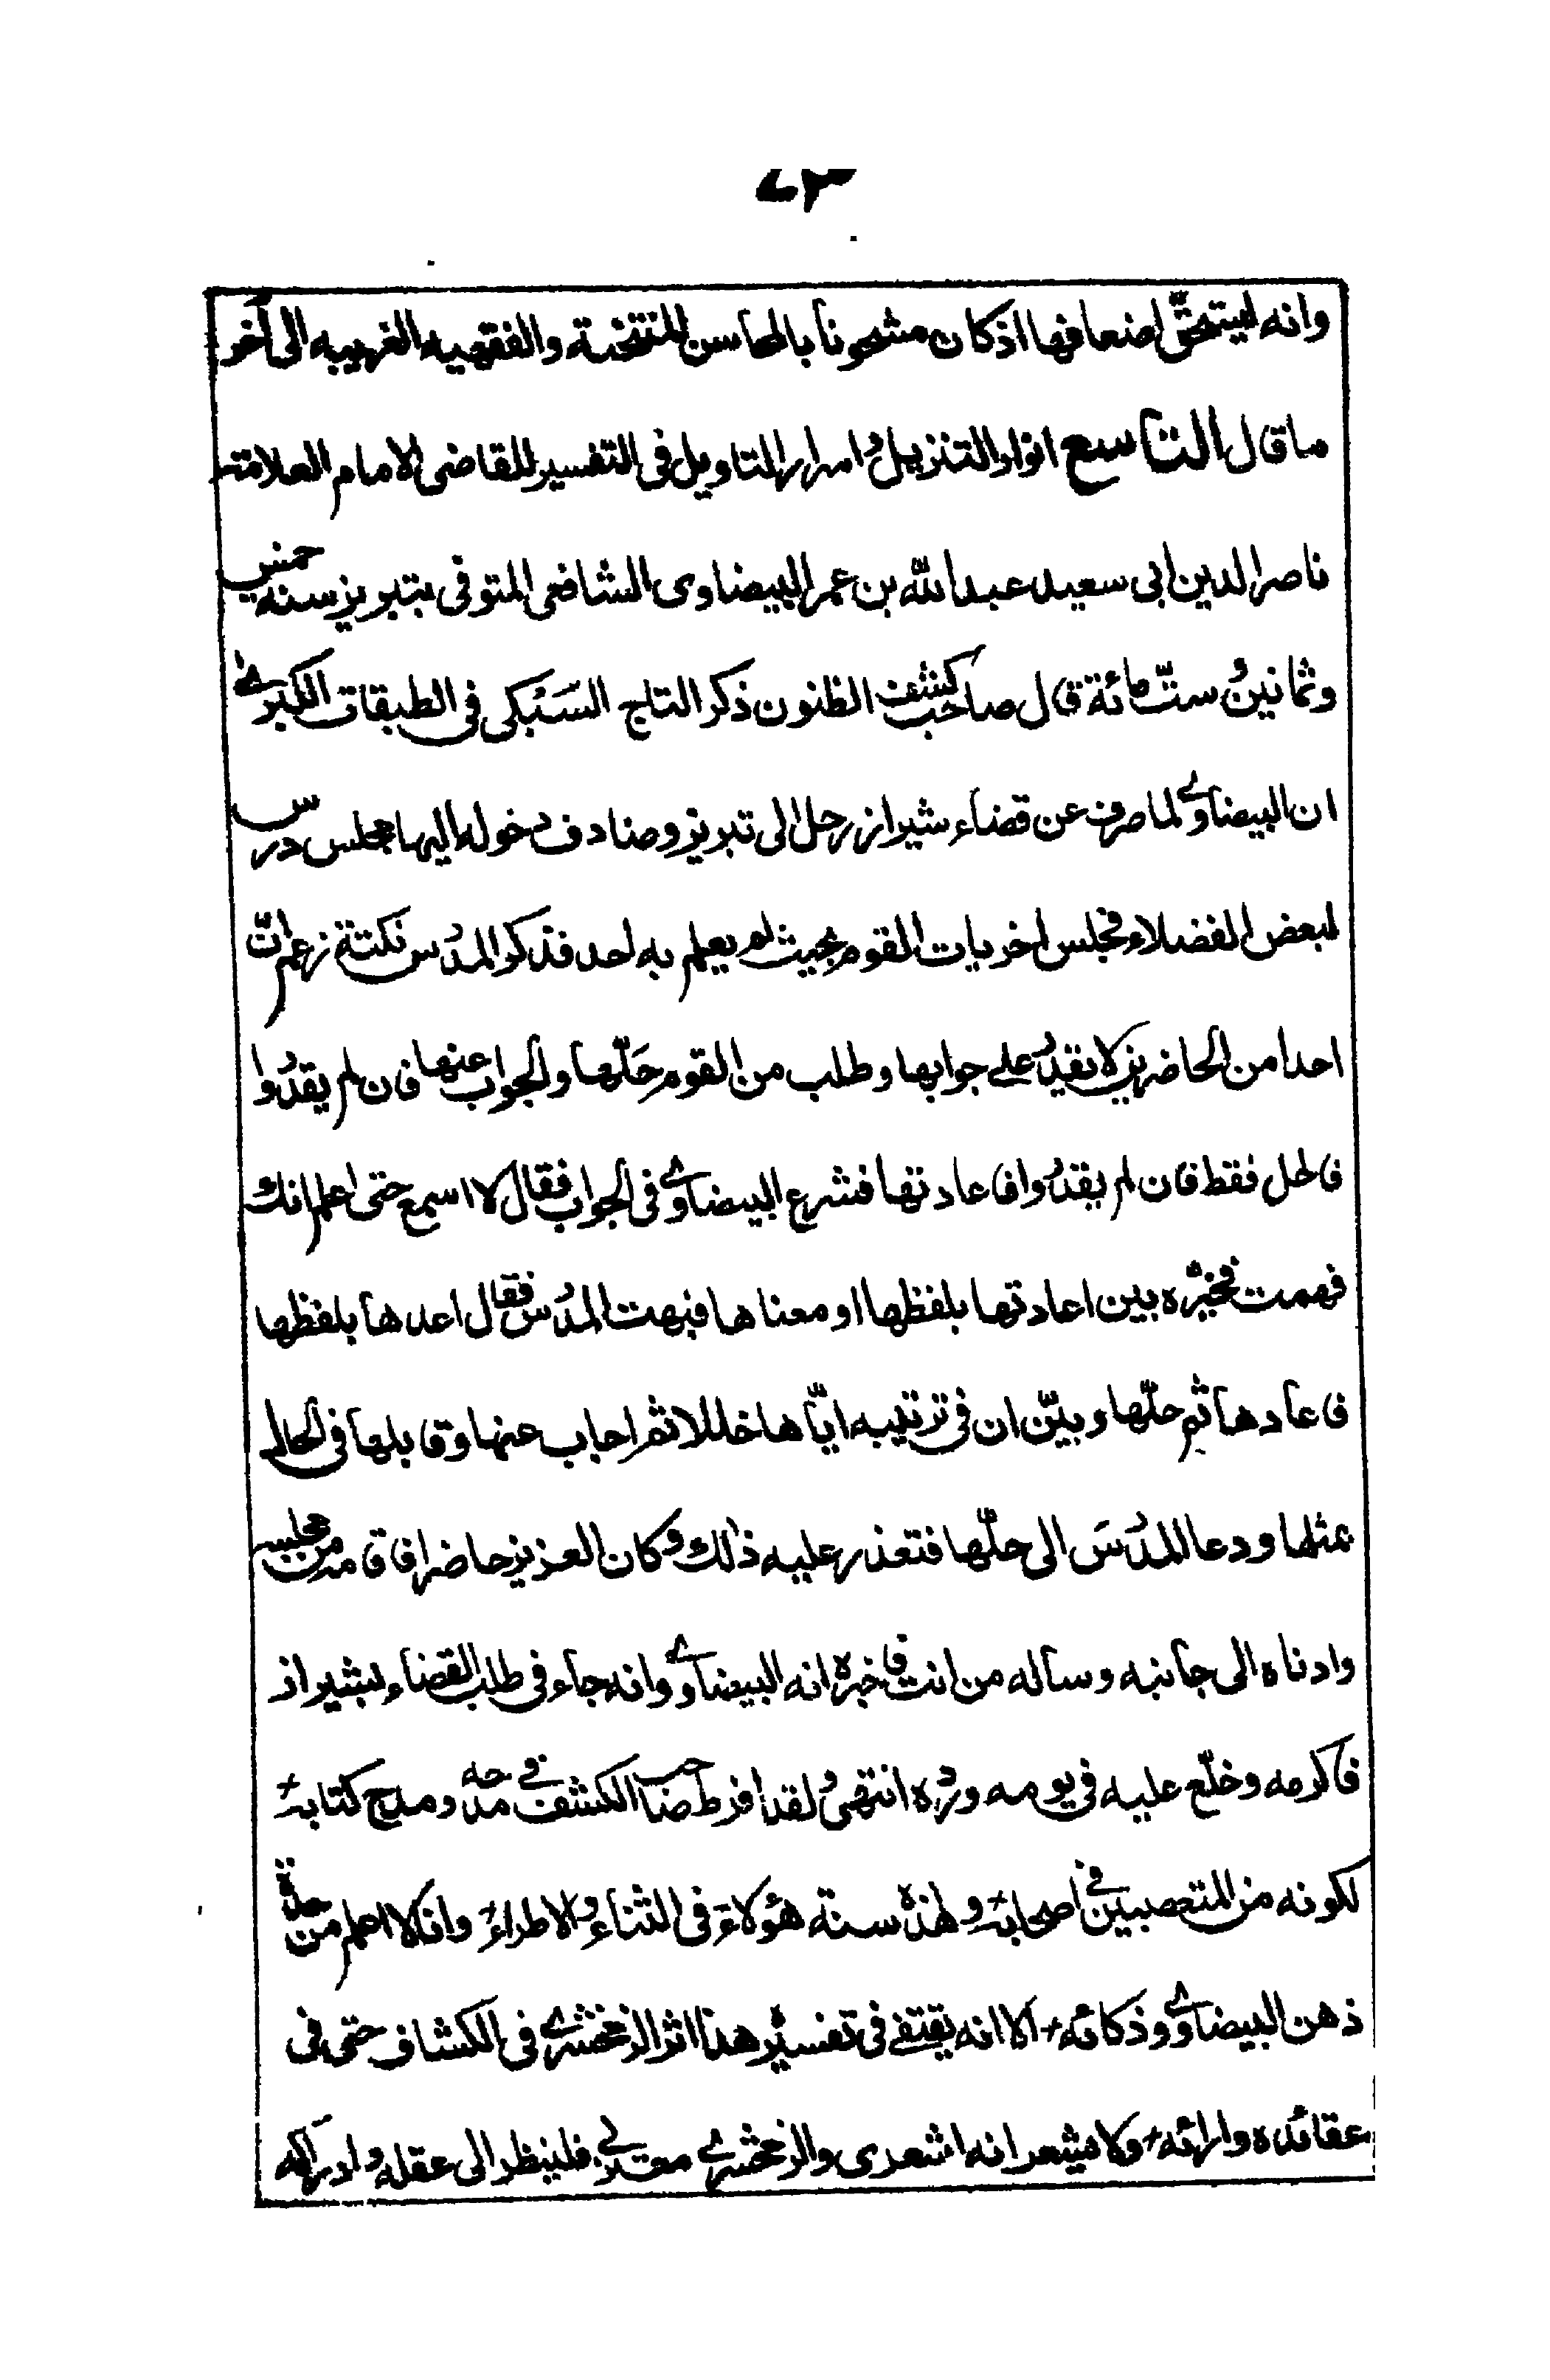 ٧٣
وانه ليستحق اضعافها اذ كان مشحونا بالمحاسن المنتخبة والفقهيه الغريبه الى آخر
ما قال التاسع انوار التنزيل و اسرار التاويل فى التفسير للقاضى الامام العلامة
ناصر الدين ابى سعيد عبد الله بن عمر البيضاوى الشافعى المتوفى بتبريز سنه خمس
وثمانين و ستّ مائة قال صاحب كشف الظنون ذكر التاج السَبْكى فى الطبقات الكبرے
ان البيضاوے لما صرف عن قضاء شيراز رحل الى تبريز وصادف دخوله اليها مجلس درس
لبعض الفضلاء فجلس اخريات القوم بحيث لم يعلم به احد فذكر المدرس نكتة زعم انّ
احدا من الحاضرين لا يقدر على جوابها و طلب من القوم حَلّها والجواب عنها فان لم يقدروا
فالحل فقط فان لم يقدروا فاعادتها فشرع البيضاوے فى الجواب فقال لا اسمع حتى اعلم انك
فهمت فخيّره بين اعادتها بلفظها او معناها فبهت المدرس فقال اعدها بلفظها
فاعادها ثم حلّها و بيّن ان فى ترتيبه ايّاها خللا ثم اجاب عنها وقابلها فى الحال
بمثلها و دعا المدرسَ الى حلّها فتعذر عليه ذلك و كان العزيز حاضرا فاقامه من مجلسه
وادناه الى جانبه وساله من انت فاخبره انه البيضاوے وانه جاء فى طلب القضاء بشيراز
فاكرمه وخلّع عليه فى يومه وردّه انتهى و لقد افرط صاحب الكشف فے مدحه و مدح كتابه
لكونه من المتعصبين فے اصحابه و هذه سنة هؤلاء فى الثناء و الاطراء وانا لا اعلم من حدّة
ذهن البيضاوے و ذكائه الا انه يقتفے فى تفسيره هذا اثر الزمخشرے فى الكشاف حتى فى
عقائده وارائه ولا يشعر انه اشعرى والزمخشرے معتزلے فلينظر الى عقله و ادراكه